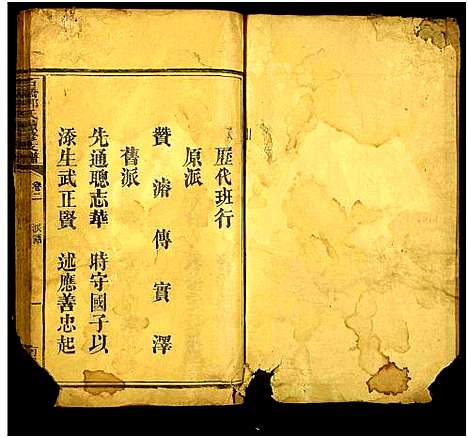 歷代班行
原派
贊濟傳實澤
舊派
先通聰志華 時守國子以
添生武正賢 述應善忠起
卷二